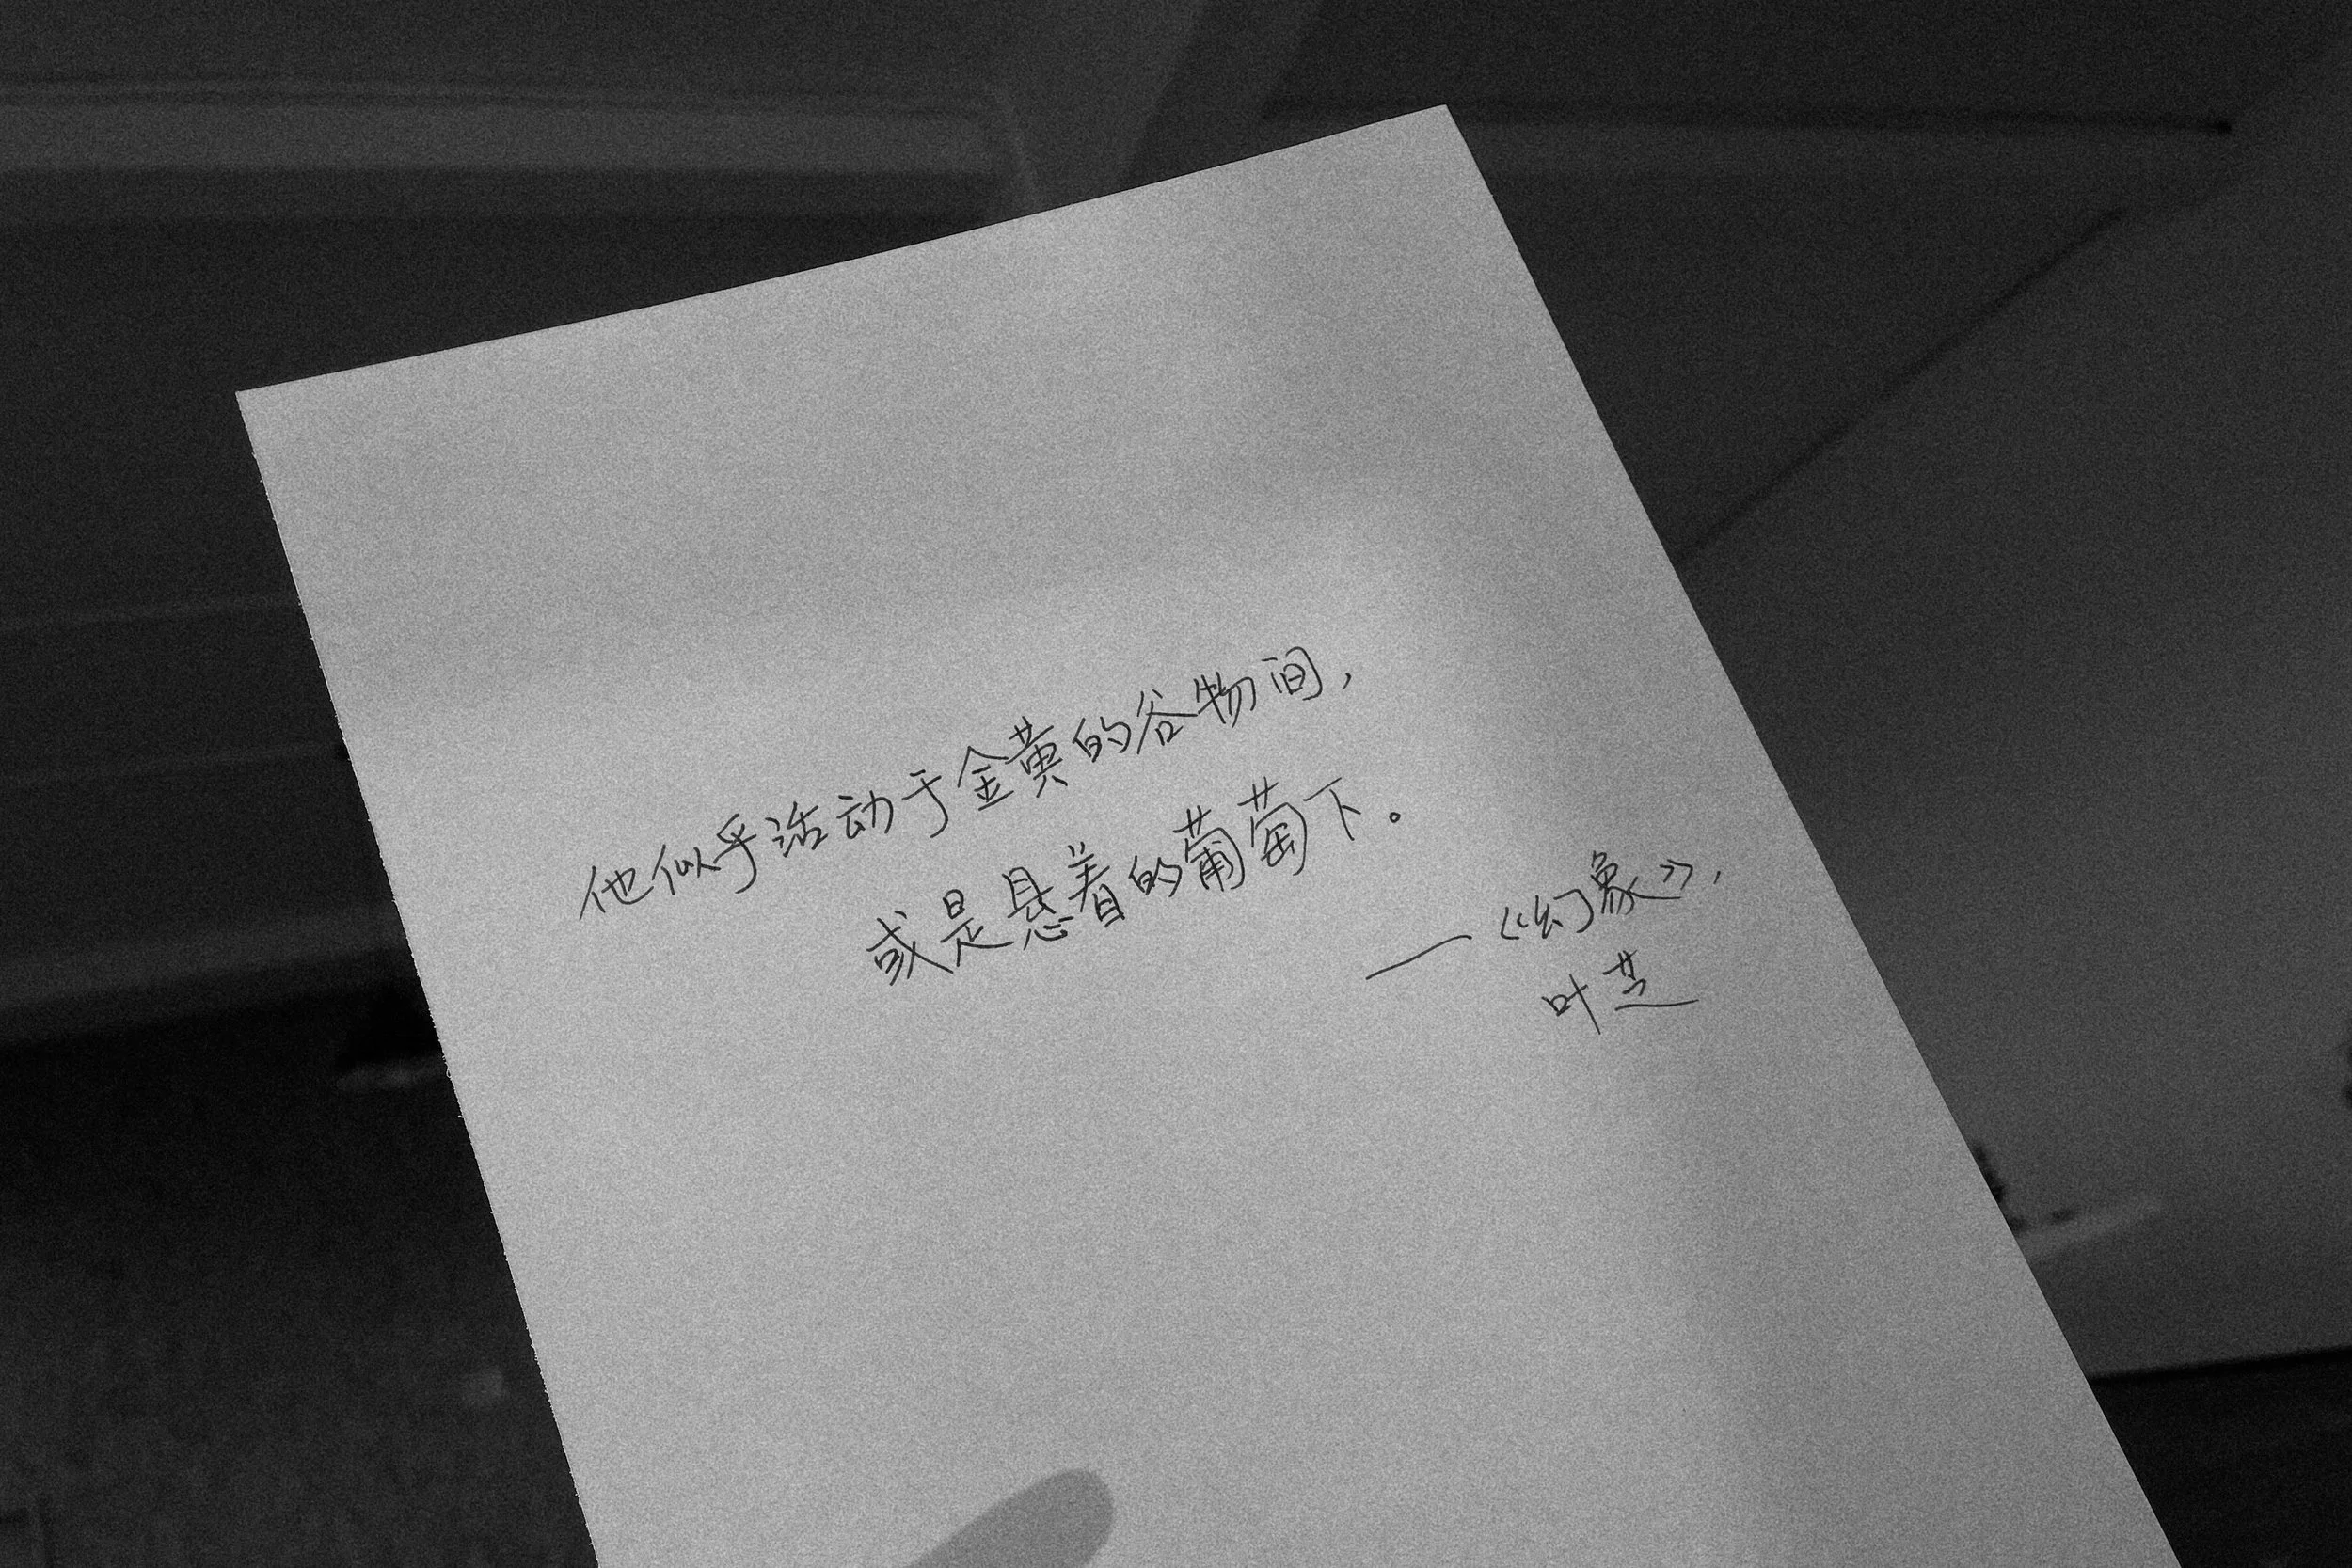 他似乎活动于金黄的谷物间，
或是悬着的葡萄下。
——《幻象》，
叶芝